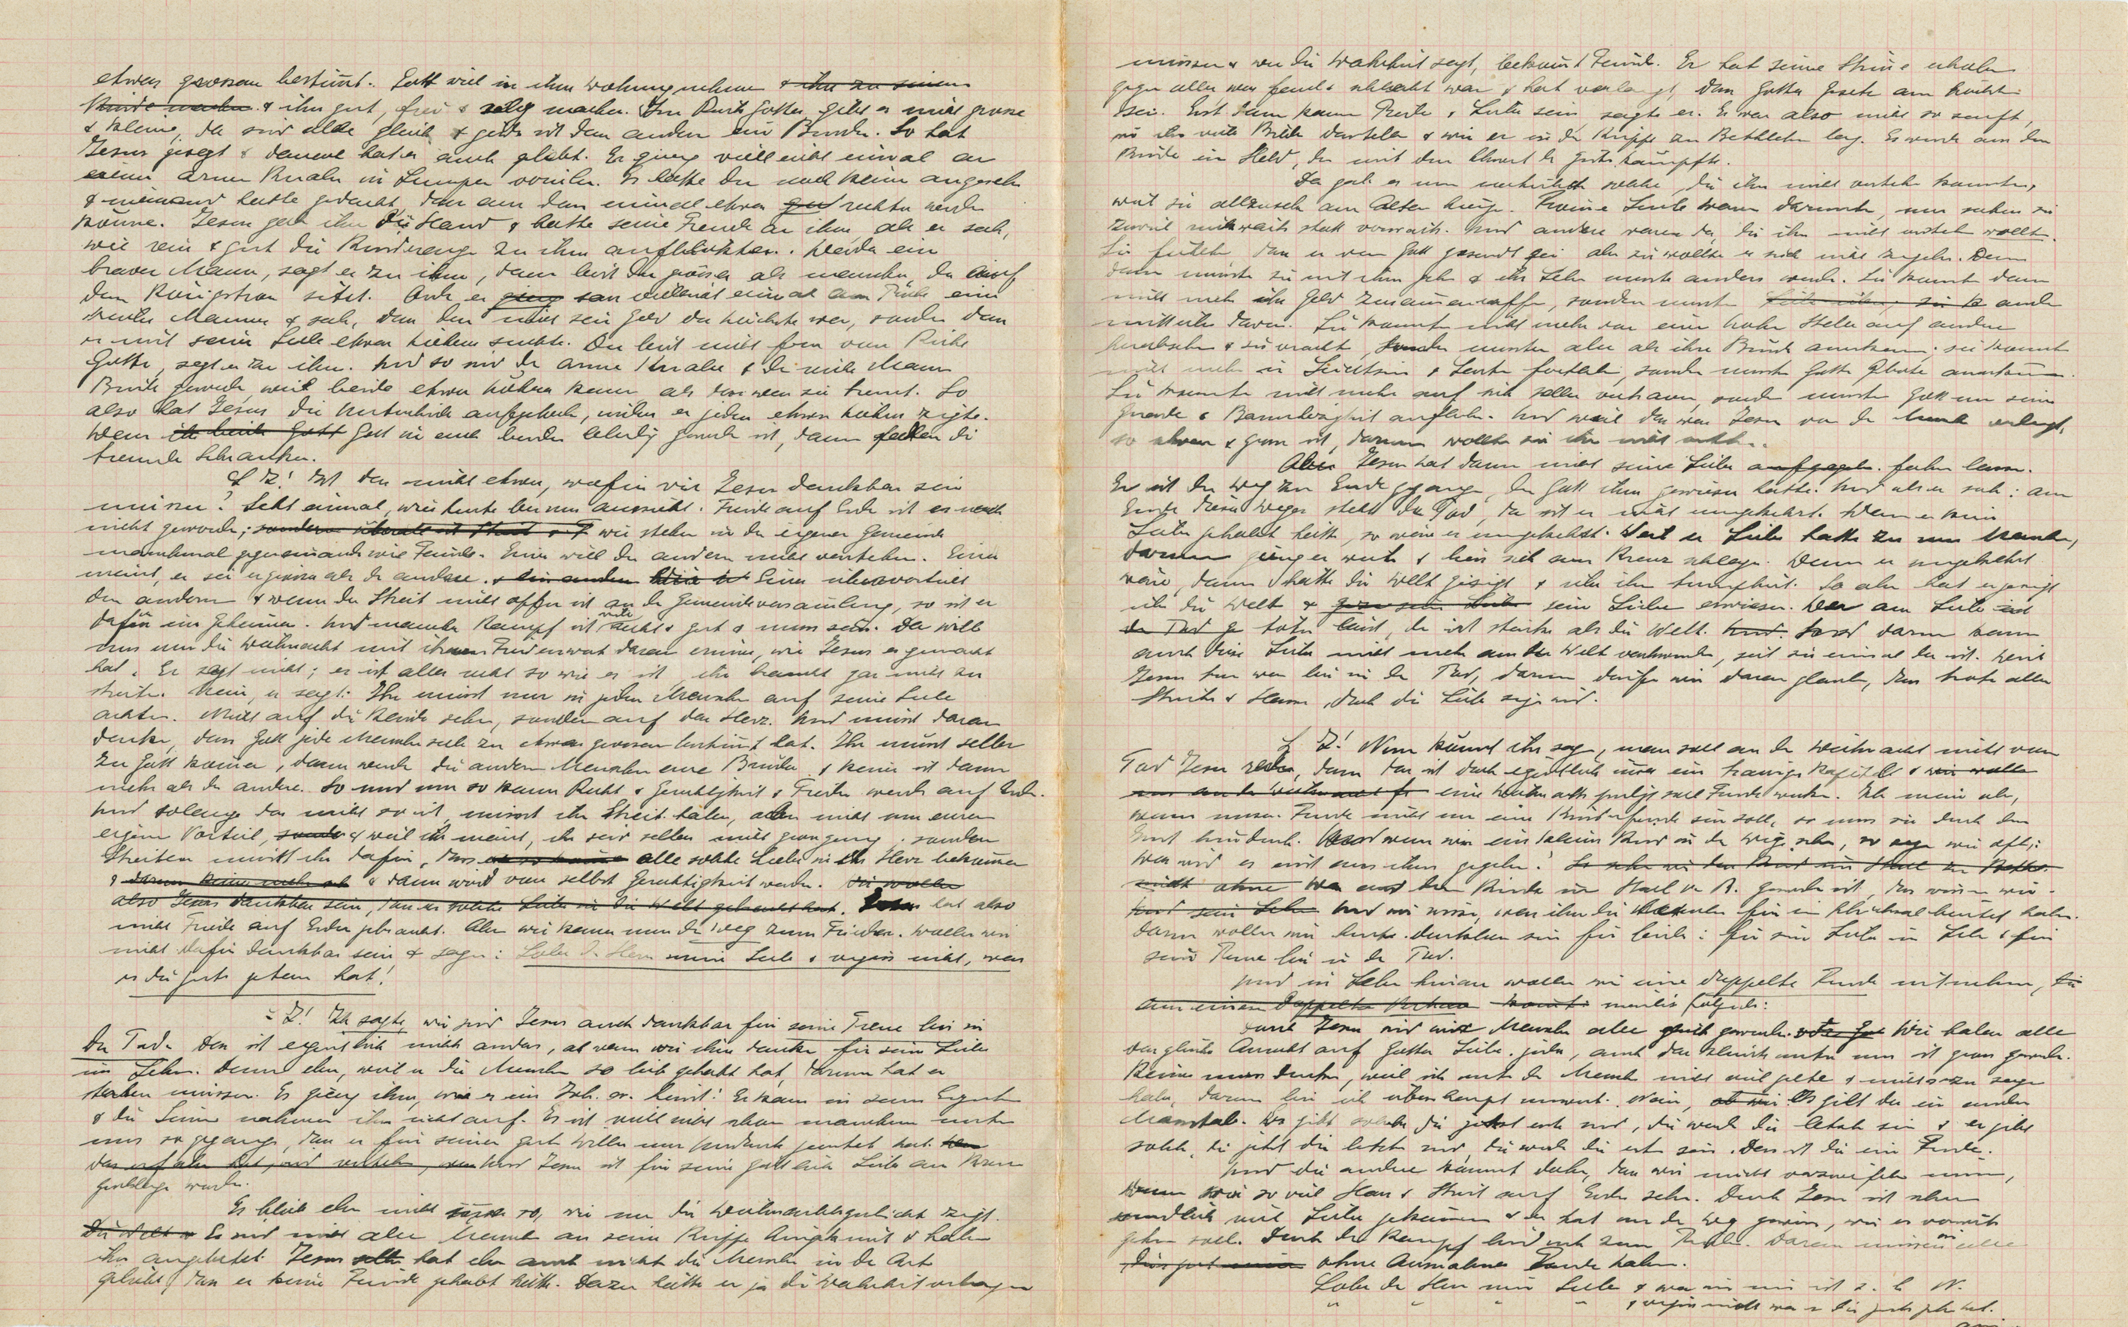 etwas grossem bestimmt. Gott will in ihm Wohnung nehmen & ihn zu seinem
Kinde machen & ihn gut, frei & selig machen. Im Reich Gottes gibt es nicht grosse
& kleine, da sind alle gleich & jeder ist dem andern ein Bruder. So hat
Jesus gesagt & danach hat er auch gelebt. Er ging vielleicht einmal an
einem armen Knaben in Lumpen vorüber. Es hatte den noch keiner angesehen
& niemand hatte gedacht, dass aus dem einmal etwas rechtes werden
könne. Jesus gab ihm die Hand & hatte seine Freude an ihm, als er sah,
wie rein & gut die Kinderaugen zu ihm aufblickten. Werde ein
braver Mann, sagt er zu ihm, dann bist du grösser als mancher, der auf
dem Königsthron sitzt. Oder er ging vielleicht einmal am Tische eines
reichen Mannes & sah, dass dem nicht sein Geld das höchste war, sondern dass
er mit seiner Seele etwas höheres suchte. Du bist nicht fern vom Reiche
Gottes, sagt er zu ihm. Und so sind der arme Knabe & der reiche Mann
Brüder geworden, weil beide etwas höheres kennen als das was sie trennt. So
also hat Jesus die Unterschiede aufgehoben, indem er jedem etwas höheres zeigte.
Wenn Gott in euch beiden lebendig geworden ist, dann fallen die
trennenden Schranken.
L. Z.! Ist das nicht etwas, wofür wir Jesus dankbar sein
müssen? Seht einmal, wie heute bei uns aussieht. Friede auf Erden ist es noch
nicht geworden; sondern überall ist Streit & wir stehen in der eigenen Gemeinde
manchmal gegeneinander wie Feinde. Einer will den andern nicht verstehen. Einer
meint, er sei grösser als der andere. Einer übervorteilt
den andern & wenn der Streit nicht offen ist an der Gemeindeversammlung, so ist er
dafür im Geheimen. Und mancher Kampf ist recht & gut & muss sein. Da will
uns nun die Weihnacht mit ihrem Friedenswort daran erinnern, wie Jesus es gemacht
hat. Er sagt nicht; es ist alles recht so wie es ist, ihr braucht gar nicht zu
streiten. Nein, er sagt: Ihr müsst nur in jedem Menschen auf seine Seele
achten. Nicht auf die Kleider sehen, sondern auf das Herz. Und müsst daran
denken, dass Gott jede Menschenseele zu etwas grossem bestimmt hat. Ihr müsst selber
zu Gott kommen, dann werden die andern Menschen eure Brüder & keiner ist dann
mehr als der andere. So und nur so kann Recht & Gerechtigkeit & Friede werden auf Erden.
Und solange das nicht so ist, müsst ihr Streit haben, aber nicht um euren
eigenen Vorteil, sondern & weil ihr meint, ihr seid selber nicht gross genug, sondern
streiten müsst ihr dafür, dass alle solche Liebe in ihr Herz bekommen
& dann wird von selbst Gerechtigkeit werden. Wir wollen
also Jesus dankbar sein, dass er solche Liebe in die Welt gebracht hat. Jesus hat also
nicht Friede auf Erden gebracht. Aber wir kennen nun den Weg zum Frieden. Wollen wir
nicht dafür dankbar sein & sagen: Lobe den Herrn meine Seele & vergiss nicht, was
er dir gutes getan hat!
L. Z.! Ich sagte, wir sind Jesus auch dankbar für seine Treue bis in
den Tod. Das ist eigentlich nichts anders, als wenn wir ihm danken für seine Liebe
im Leben. Denn eben, weil er die Menschen so lieb gehabt hat, darum hat er
sterben müssen. Es ging ihm, wie es im Joh. ev. heisst: Er kam in sein Eigentum
& die Seinen nahmen ihn nicht auf. Es ist vielleicht schon manchem unter
uns so gegangen, dass er für seinen guten Willen nur Undank geerntet hat.
Und Jesus ist für seine göttliche Liebe ans Kreuz
geschlagen worden.
Es blieb eben nicht immer so, wie uns die Weihnachtsgeschichte zeigt.
Die Welt & Es sind nicht alle Menschen an seine Krippe hingekniet & haben
ihn angebetet. Jesus hat eben auch nicht die Menschen in der Art
geliebt, dass er keine Feinde gehabt hätte. Dazu hätte er ja die Wahrheit verleugnen
müssen & wer die Wahrheit sagt, bekommt Feinde. Er hat seine Stimme erhoben
gegen alles was faul & schlecht war & hat verlangt, dass Gottes Gesetz am höchsten
sei. Erst dann kann Friede & Liebe sein, sagte er. Er war also nicht so sanft,
wie ihn viele Bilder darstellen & wie er in der Krippe zu Bethlehem lag. Es wurde aus dem
Kinde ein Held, der mit dem Schwert des Geistes kämpfte.
Da gab es nun natürlich solche, die ihn nicht verstehen konnten,
weil sie allzusehr am Alten hingen. Fromme Leute waren darunter, nur sahen sie
zurück statt vorwärts. Und andere waren da, die ihn nicht verstehen wollten.
Sie fühlten, dass er von Gott gesandt sei aber sie wollten es sich nicht zugeben. Denn
dann mussten sie mit ihm gehen & ihr Leben musste anders werden. Sie konnten dann
nicht mehr ihr Geld zusammenraffen, sondern mussten auch
mitteilen davon. Sie konnten nicht mehr von einer hohen Stelle auf andere
herabsehen & sie verachten, sondern mussten alle als ihre Brüder anerkennen; sie konnten
nicht mehr in Leichtsinn & Laster fortleben, sondern mussten Gottes Gebote annehmen.
Sie konnten nicht mehr auf sich selber vertrauen, sondern mussten Gott um seine
Gnade & Barmherzigkeit anflehen. Und weil das was Jesus von den Menschen verlangt,
so schwer & gross ist, darum wollten sie ihn nicht
Aber Jesus hat darum nicht seine Liebe aufgegeben. fahren lassen.
Er ist den Weg zu Ende gegangen, den Gott ihm gewiesen hatte. Und als er sah: am
Ende dieses Weges steht der Tod, da ist er nicht umgekehrt. Wenn er keine
Liebe gehabt hätte, so wäre er umgekehrt. Weil er Liebe hatte zu uns Menschen,
darum ging er weiter & liess sich ans Kreuz schlagen. Wenn er umgekehrt
wäre, dann hätte die Welt gesiegt & über ihn triumphiert. So aber hat er gesiegt
über die Welt & seine Liebe erwiesen. Wer aus Liebe
den Tod leidet, der ist stärker als die Welt. Und darum kann
auch diese Liebe nicht mehr aus der Welt verschwinden, seit sie einmal da ist. Weil
Jesus treu war bis in den Tod, darum dürfen wir daran glauben, dass trotz allem
Streit & Hass, doch die Liebe siegen wird.
L. Z.! Nun könnt ihr sagen, man soll an der Weihnacht nicht vom
Tod Jesu reden, denn das ist doch eigentlich immer ein trauriges Kapitel &
eine Weihnachtspredigt soll Freude wecken. Ich meine aber,
wenn unsere Freude nicht nur eine Kinderfreude sein soll, so muss sie durch den
Ernst hindurch. Und wenn wir ein kleines Kind in der Wiege sehen, so sagen wir oft:
Was wird es wohl aus ihm geben? So sehen wir das Kind im Stall zu Bethl.
Was aus dem Kinde im Stall in B. geworden ist, das wissen wir.
Und sein Leben Und wir wissen, was ihm die Menschen für ein Schicksal bereitet haben.
Darum wollen wir heute dankbar sein für beides: für seine Liebe im Leben & für
seine Treue bis in den Tod.
Und ins Leben hinaus wollen wir eine doppelte Freude mitnehmen,
nämlich folgende:
Durch Jesus sind wir Menschen alle gleich geworden. Wir haben alle
das gleiche Anrecht auf Gottes Liebe. Jeder, auch der kleinste unter uns ist gross geworden.
Keiner muss denken, weil ich unter den Menschen nicht viel gelte & nichts zu sagen
habe, darum bin ich überhaupt unwert. Nein, Es gibt da einen andern
Massstab. Es gibt solche die jetzt erste sind, die werden die letzten sein & es gibt
solche, die jetzt die letzten sind, die werden die ersten sein. Das ist die eine Freude.
Und die andere kommt daher, dass wir nicht verzweifeln müssen,
wenn wir so viel Hass & Streit auf Erden sehen. Durch Jesus ist eben
unendlich viel Liebe gekommen & er hat uns den Weg gewiesen, wie es vorwärts
gehen soll. Durch den Kampf hindurch zum Frieden. Darum müssen wir alle
ohne Ausnahme Freude haben.
Lobe den Herrn meine Seele & was in mir ist s. h. N.
" " " " & vergiss nicht was er dir gutes getan hat.